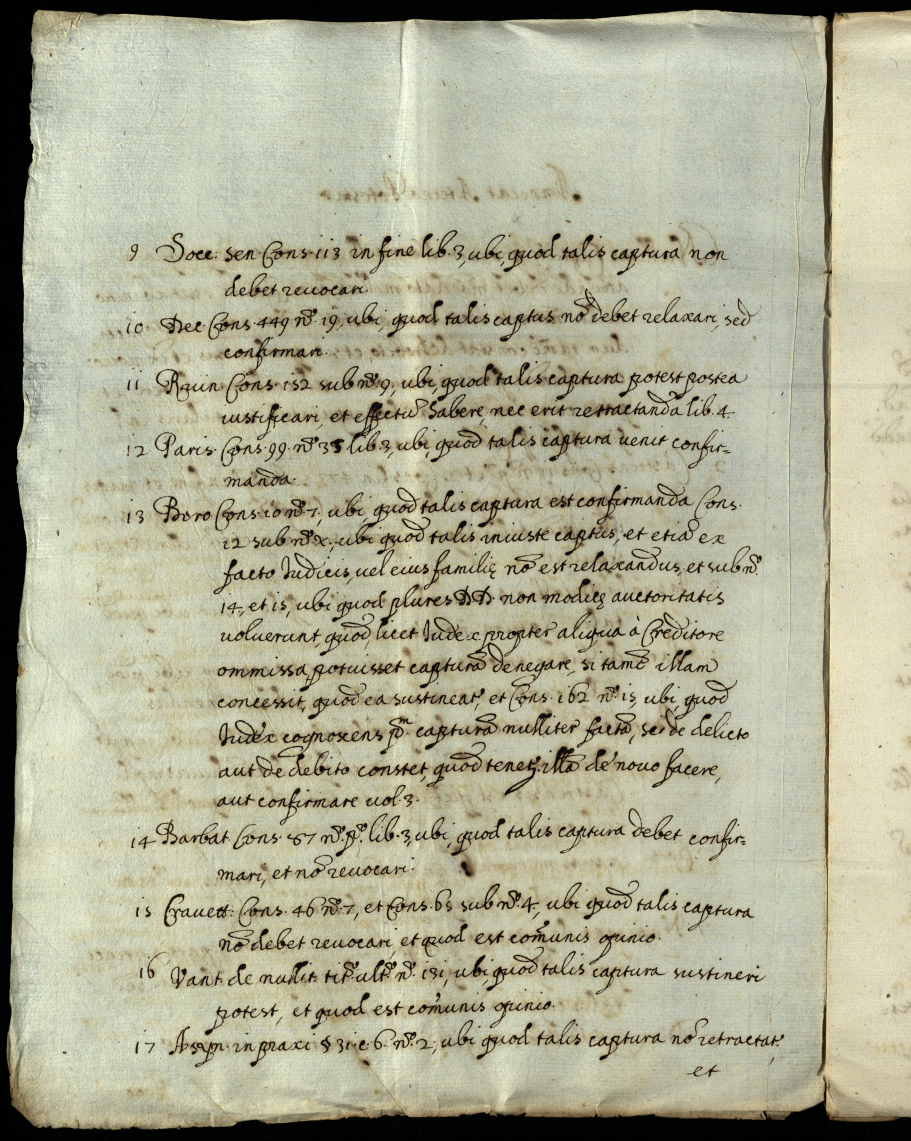 9 Socc: sen Cons. 113 in fine lib. 3, ubi, quod talis captura non
debet revocari.
10 Dec. Cons. 449 n.º 19, ubi, quod talis captus nõ debet relaxari, sed
confirmari.
11 Ruin. Cons. 152 sub n.º 9, ubi, quod talis captura potest postea
iustificari, et effectũ habere, nec erit retractanda lib. 4.
12 Paris. Cons. 99. n.º 35 lib. 3, ubi, quod talis captura venit confir=
manda.
13 Bero Cons. 10 n.º 7, ubi, quod talis captura est confirmanda Cons.
12 sub n.º x., ubi quod talis iniuste captus, et etiã ex
facto Iudicis, vel eius familię nõ est relaxandus, et sub n.º
14, et 15, ubi quod plures DD. non modicę auctoritatis
voluerunt, quod, licet Iudex propter aliqua à Creditore
ommissa, potuisset capturã denegare, si tamẽ illam
concessit, quod ea sustineat.ʳ, et Cons. 162 n.º 15, ubi, quod
Iudex cognoxens p.ᵐ capturã nulliter factã, sed de delicto
aut de debito constet, quod tenet.ʳ illã de novo facere,
aut confirmare vol. 3.
14 Barbat Cons. 87 n.º p.º lib. 3, ubi, quod talis captura debet confir=
mari, et nõ revocari.
15 Cravett: Cons. 46 n.º 7, et Cons. 65 sub n.º 4, ubi quod talis captura
nõ debet revocari, et quod est com̃unis opinio.
16 Vant. de nullit. tit.º ult.º n.º 131, ubi, quod talis captura sustineri
potest, et quod est com̃unis opinio.
17 in praxi § 31. c. 6. n.º 2, ubi quod talis captura nõ retractat.ʳ
et